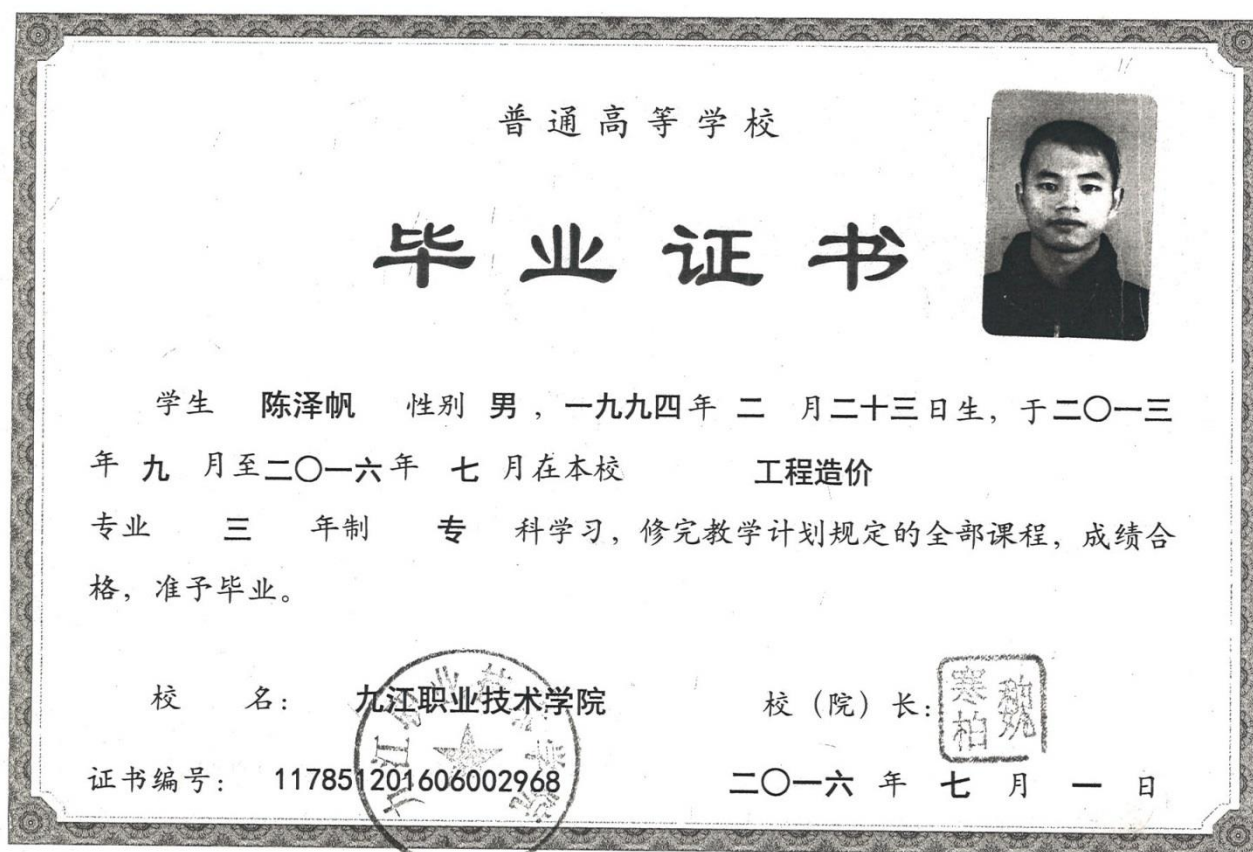 普通高等学校
毕业证书
学生 陈泽帆 性别 男，一九九四年 二 月二十三日生，于二〇一三
年 九 月至二〇一六年 七 月在本校 工程造价
专业 三 年制 专 科学习，修完教学计划规定的全部课程，成绩合
格，准予毕业。
校 名： 九江职业技术学院
九江职业技术学院
校（院）长：
魏寒柏
证书编号： 117851201606002968
二〇一六 年 七 月 一 日